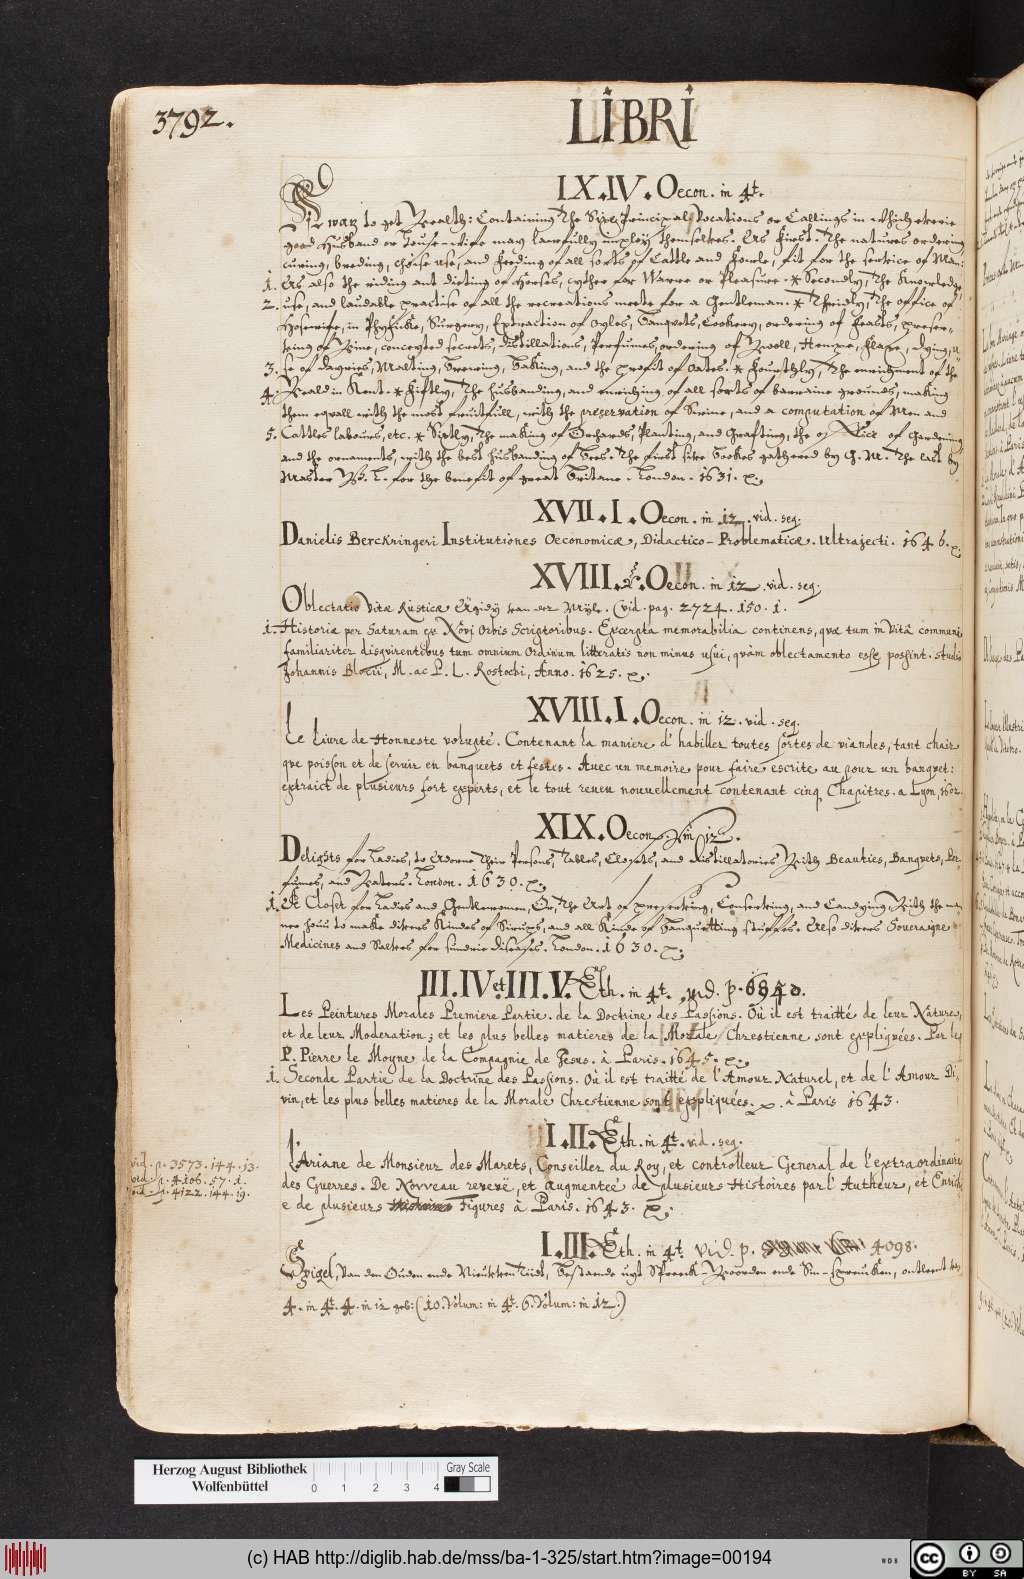 3792.
LIBRI
IX.IV. Oecon. in 4t.
A way to get Wealth: Containing the Sixe Principal Vocations or Callings in which everie
good Husband or house-wife may lawfully imploy themselves. As First. The natures ordering
curing, breding, choise use, and feeding of all sorts of Cattle and Fowle, fit for the service of Man:
1. As also the riding and dieting of Horses, eyther for Warre or Pleasure. * Secondly, The Knowledge,
2. use, and laudable practise of all the recreations meete for a Gentleman. * Thridly, The office of
Hosewife, in Physicke, Surgery, Extraction of Oyles, Banqvets, Cookery, ordering of Feasts, preser-
ving of Wine, conceyted secrets, distillations, Perfumes, ordering of Wooll, Hempe, Flaxe, Dying, u
3. se of Dayries, Malting, Brewing, Baking, and the profit of Oates. * Fourthly, The enrichment of the
4. Weald in Kent. * Fiftly, The husbanding, and enriching of all sorts of barraine grounds, making
them eqvall with the most fruitfull, with the preservation of Swine, and a computation of Men and
5. Cattles labours, etc. * Sixtly, The making of Orchards, Planting, and Grafting, the office of Gardening
and the ornaments, with the best husbanding of Bees. The first five Bookes gathered by G. M. The last by
Master W. L. for the benefit of great Britane. London. 1631. p.
XVII.I. Oecon. in 12. vid. seq.
Danielis Berckringeri Institutiones Oeconomicæ, Didactico-Problematicæ. Ultrajecti. 1646. p.
XVIII.2. Oecon. in 12. vid. seq.
Oblectatio Vitæ Rusticæ Ægidij van der Myle. (vid. pag. 2724. 150. 1.
1. Historiæ per Saturam ex Novi Orbis Scriptoribus. Excerpta memorabilia continens, qvæ tum in Vitâ communi
familiariter disqvirentibus tum omnium Ordinum litteratis non minus usui, qvàm oblectamento esse possint. studio
Johannis Blocii, M. ac P. L. Rostochi, Anno. 1625. p.
XVIII.I. Oecon. in 12. vid. seq.
Le Livre de Honneste volupté. Contenant la maniere d'habiller toutes sortes de viandes, tant chair
qve poisson et de servir en banquets et festes. Avec un memoire pour faire escrite au pour un banqvet:
extraict de plusieurs fort experts, et le tout reveu nouvellement contenant cinq Chapitres. a Lyon. 1602.
XIX. Oecon. in 12.
Delights for Ladies, to Adorne their Persons, Tables, Closets, and distillatories With Beauties, Banqvets, Per
fumes, and Waters. London. 1630. p.
1. A Closet for Ladies and Gentlewomen, Or, The Art of preserving, Conserving, and Candying. With the ma
ner how to make divers Kindes of Sirups, and all Kinde of Banqvetting stuffes. Also divers Soveraigne
Medicines and Salves for sundrie diseases. London. 1630. p.
III.IV et III.V. Eth. in 4t. vid. p. 6840.
Les Peintures Morales Premiere Partie. de la Doctrine des Passions. Où il est traitté de leur Nature,
et de leur Moderation; et les plus belles matieres de la Morale Chrestienne sont expliquées. Par le
P. Pierre le Moyne de la Compagnie de Jesus. à Paris. 1645. p.
1. Seconde Partie de la Doctrine des Passions. Où il est traitté de l'Amour Naturel, et de l'Amour Di-
vin, et les plus belles matieres de la Morale Chrestienne sont expliquées. p. à Paris 1643.
I.II. Eth. in 4t. vid. seq.
vid. p. 3573. 144. 13.
vid. p. 4106. 57. 1.
vid. p. 4122. 144. 19.
L'Ariane de Monsieur des Marets, Conseiller du Roy, et controlleur General de l'extraordinaire
des Guerres. De Novveau reveuë, et augmenteé de plusieurs Histoires par l'Autheur, et Enrich
e de plusieurs Figures à Paris. 1643. p.
I.III. Eth. in 4t. vid. p. 4098.
Spigel, Van den Ouden ende Nieuwen Tijdt, Bestaende uyt Spreeck Woorden ende Sin-Spreucken, ontleent van
4. in 4t. 4. in 12 geb: (10. Volum: in 4t. 6. Volum: in 12.)
Herzog August Bibliothek
Wolfenbüttel
0 1 2 3 4
Gray Scale
(c) HAB http://diglib.hab.de/mss/ba-1-325/start.htm?image=00194
WDB
CC BY SA